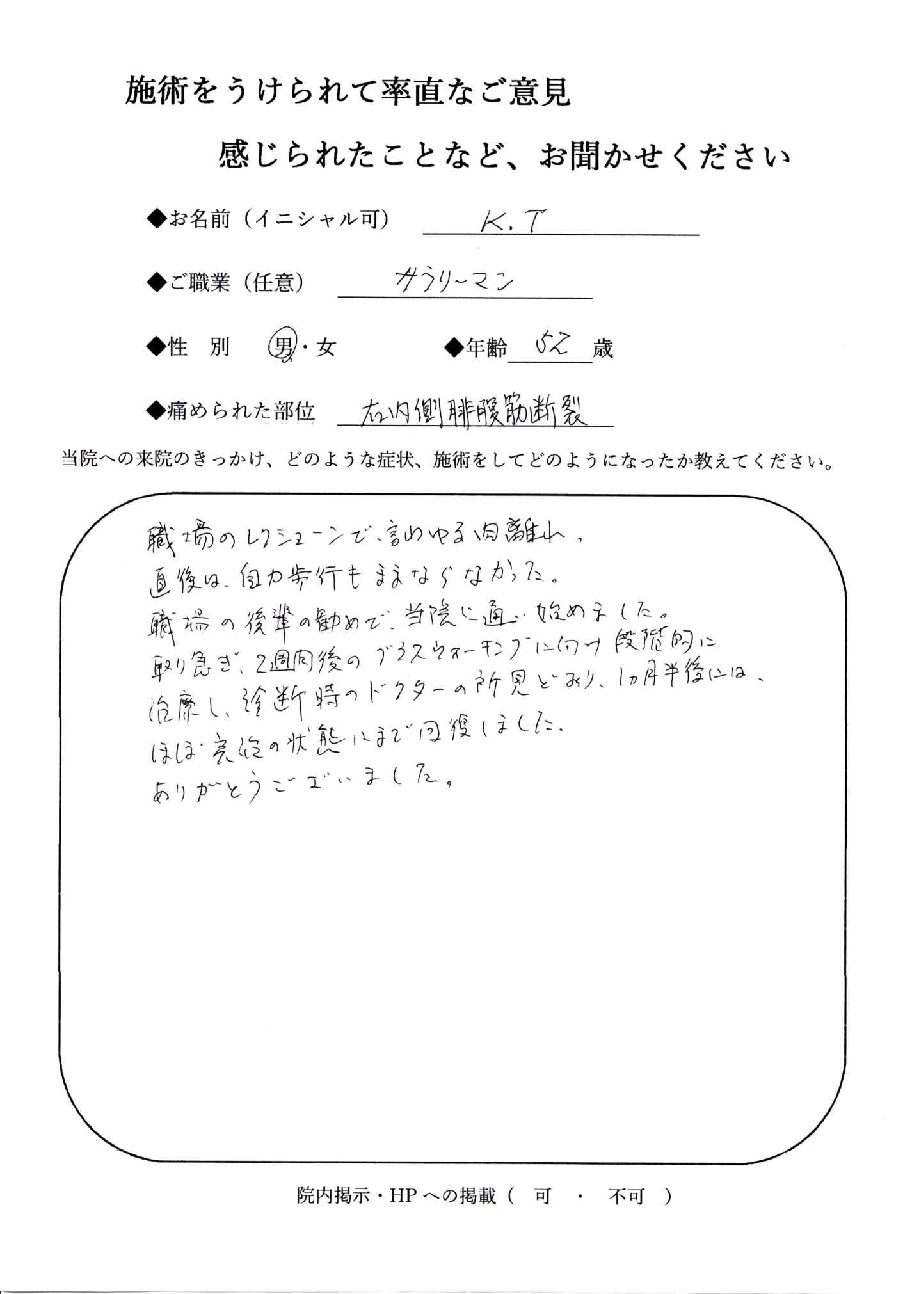 施術をうけられて率直なご意見
感じられたことなど、お聞かせください
◆お名前（イニシャル可） K.T
◆ご職業（任意） サラリーマン
◆性 別 男・女 ◆年齢 52 歳
◆痛められた部位 右内側腓腹筋断裂
当院への来院のきっかけ、どのような症状、施術をしてどのようになったか教えてください。
職場のレクレーションで、言わゆる肉離れ、
直後は、自力歩行もままならなかった。
職場の後輩の勧めで、当院に通い始めました。
取り急ぎ、2週間後の ウォーキングに向け段階的に
治療し、診断時のドクターの所見どおり、1ヵ月半後には、
ほぼ完治の状態にまで回復しました。
ありがとうございました。
院内掲示・HPへの掲載（ 可 ・ 不可 ）